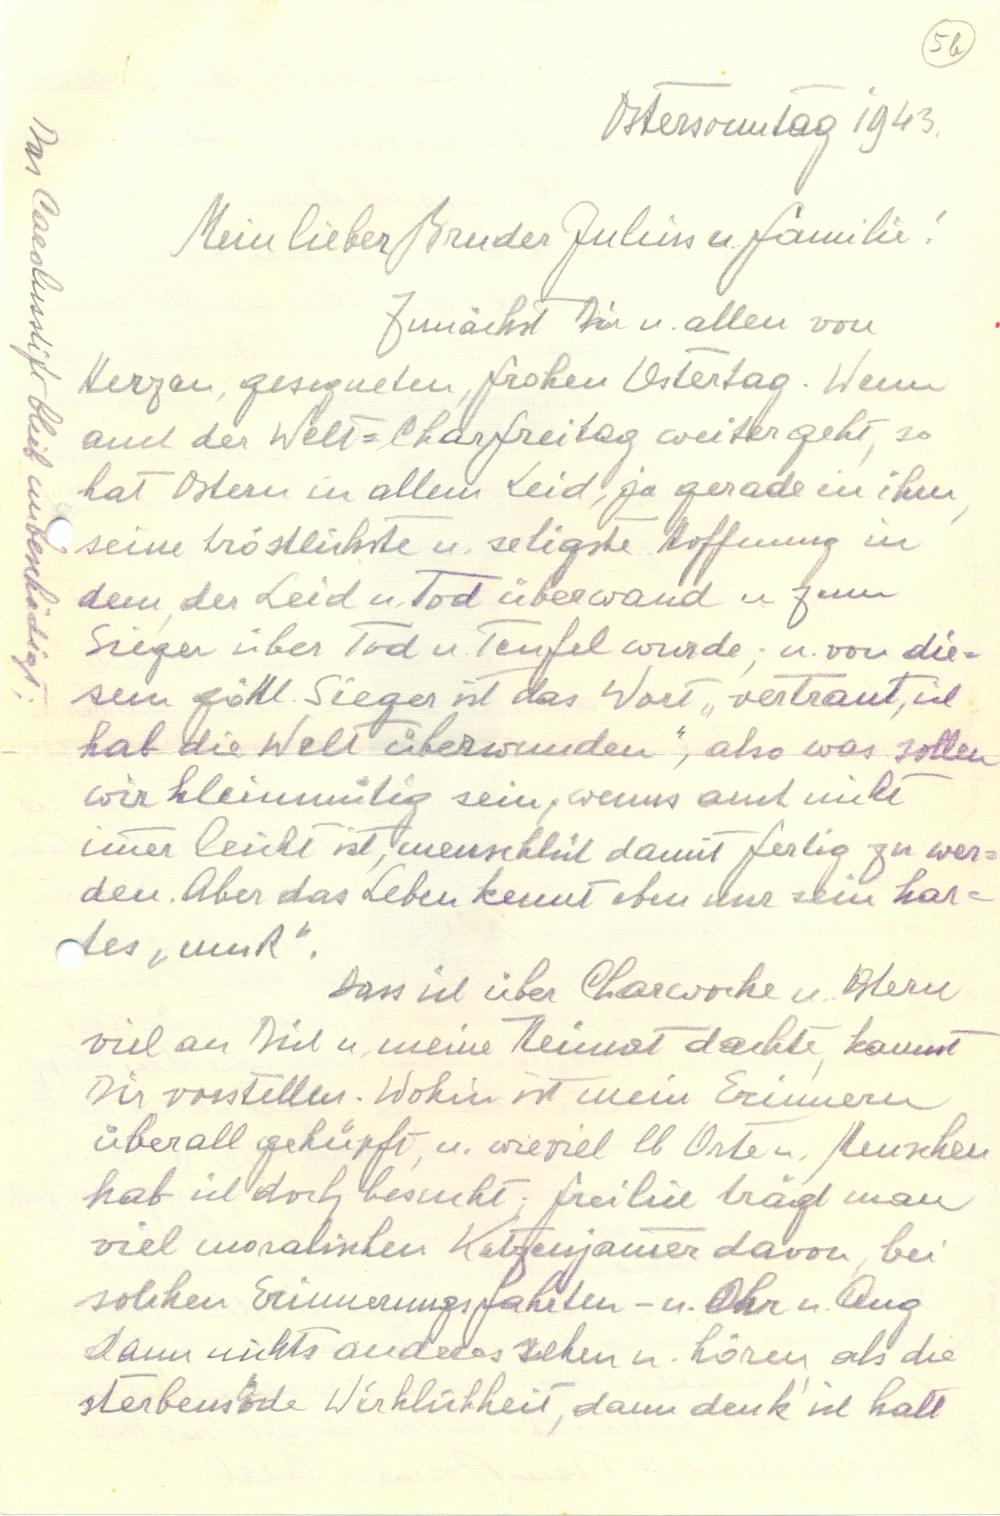 5b
Ostersonntag 1943.
Mein lieber Bruder Julius u. Familie!
Zunächst Dir u. allen von
Herzen, gesegneten, frohen Ostertag. Wenn
auch der Welt=Charfreitag weitergeht, so
hat Ostern in allem Leid, ja gerade in ihm,
seine tröstlichste u. seligste Hoffnung in
dem, der Leid u. Tod überwand u zum
Sieger über Tod u. Teufel wurde; u. von die=
sem göttl. Sieger ist das Wort „vertraut, ich
hab die Welt überwunden", also was sollen
wir kleinmütig sein, wenns auch nicht
im̅er leicht ist, menschlich damit fertig zu wer=
den. Aber das Leben kennt eben nur sein har=
tes „muß".
Dass ich über Charwoche u. Ostern
viel an Dich u. meine Heimat dachte, kannst
Dir vorstellen. Wohin ist mein Erinnern
überall gehüpft, u. wieviel lb Orte u. Menschen
hab ich doch besucht; freilich trägt man
viel moralischen Katzenjam̅er davon, bei
solchen Erinnerungsfahrten - u. Ohr u. Aug
dann nichts anderes sehen u. hören, als die
sterbensöde Wirklichkeit, dann denk' ich halt
Das Carolusstift blieb unbeschädigt!